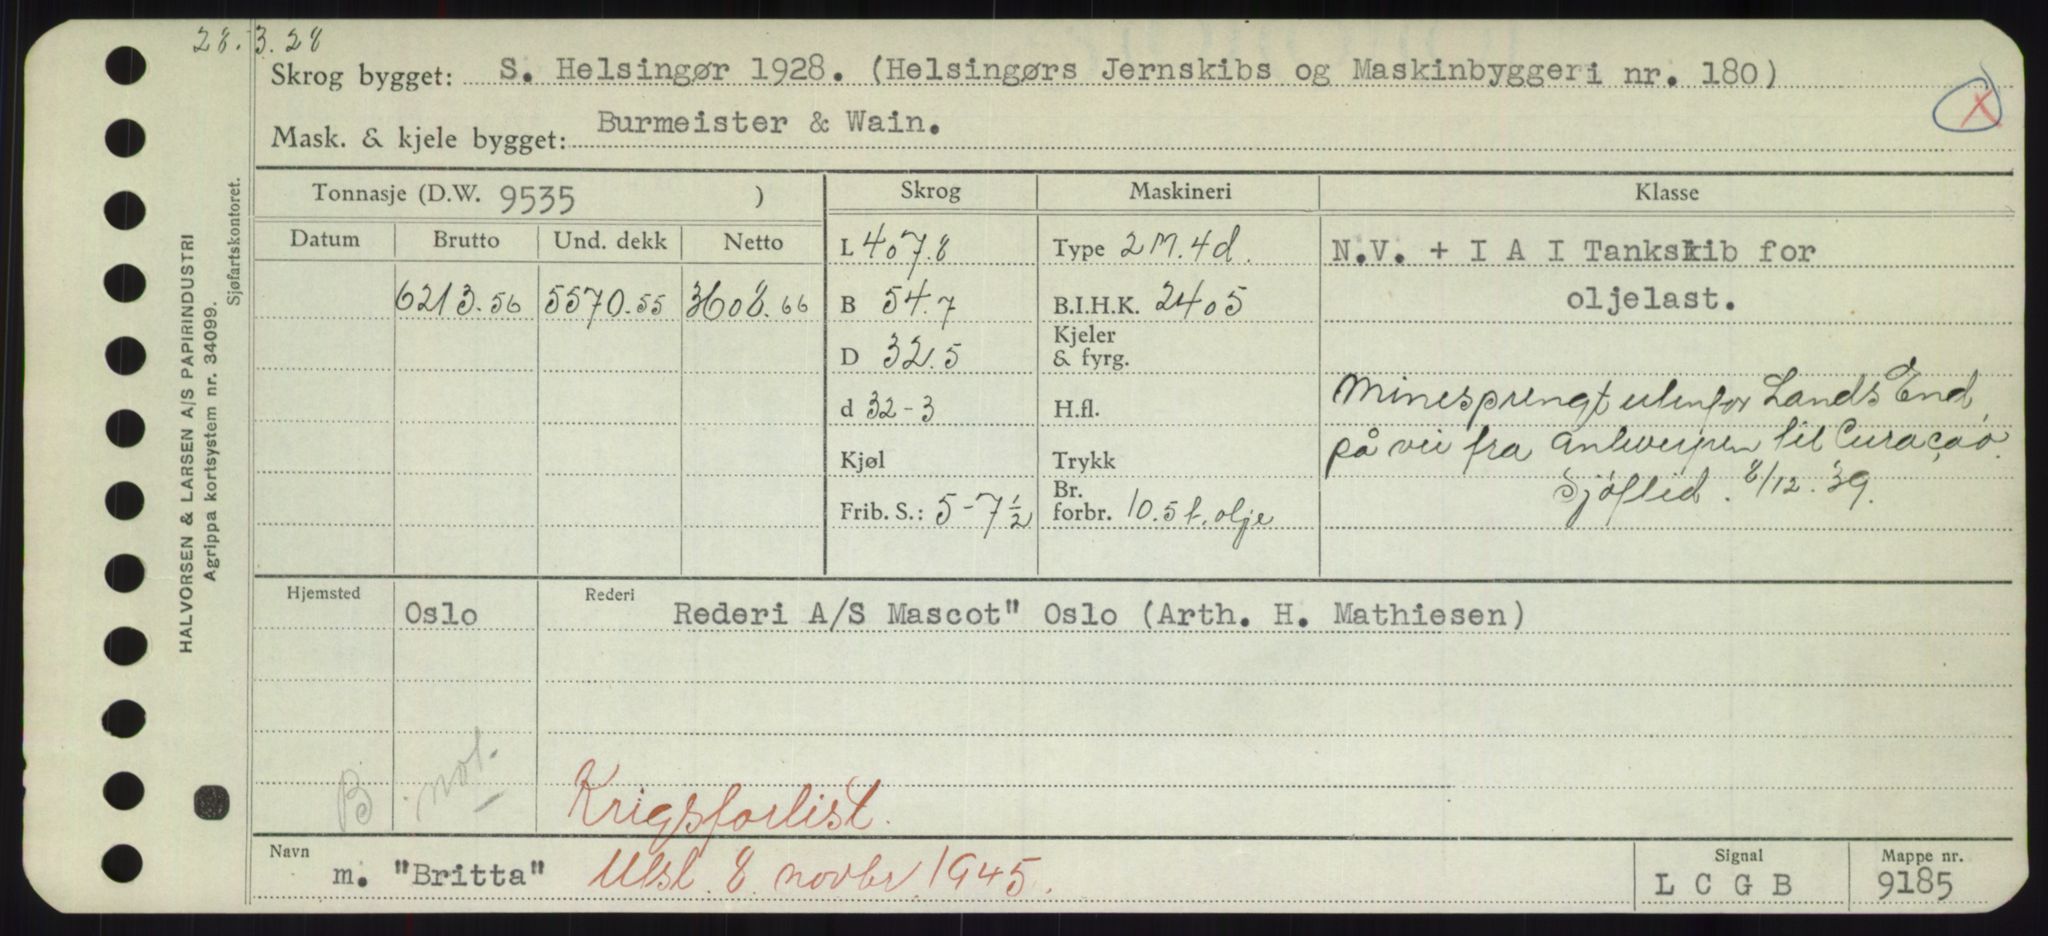 28.3.28
Skrog bygget: S. Helsingør 1928. (Helsingørs Jernskibs og Maskinbyggeri nr. 180)
X
Mask. & kjele bygget: Burmeister & Wain.
HALVORSEN & LARSEN A/S PAPIRINDUSTRI
Agrippa kortsystem nr. 34099.
Sjøfartskontoret.
Tonnasje (D.W. 9535 ) Skrog Maskineri Klasse
Datum Brutto Und. dekk Netto
L 407.8 Type 2 M. 4d. N.V. + I A I Tankskib for
6213.56 5570.55 3608.66 B 54.7 B.I.H.K. 2405 oljelast.
D 32.5 Kjeler
& fyrg.
d 32-3 H.fl. Minesprengt utenfor Lands End,
Kjøl Trykk på vei fra Antwerpen til Curaçao.
Frib. S.: 5-7½ Br.
forbr. 10.5 t. olje Sjøftid. 8/12.39.
Hjemsted Oslo Rederi Rederi A/S Mascot" Oslo (Arth. H. Mathiesen)
B. not.
Krigsforlist.
Navn m. "Britta" Utsl. 8 novbr. 1945. Signal L C G B Mappe nr. 9185